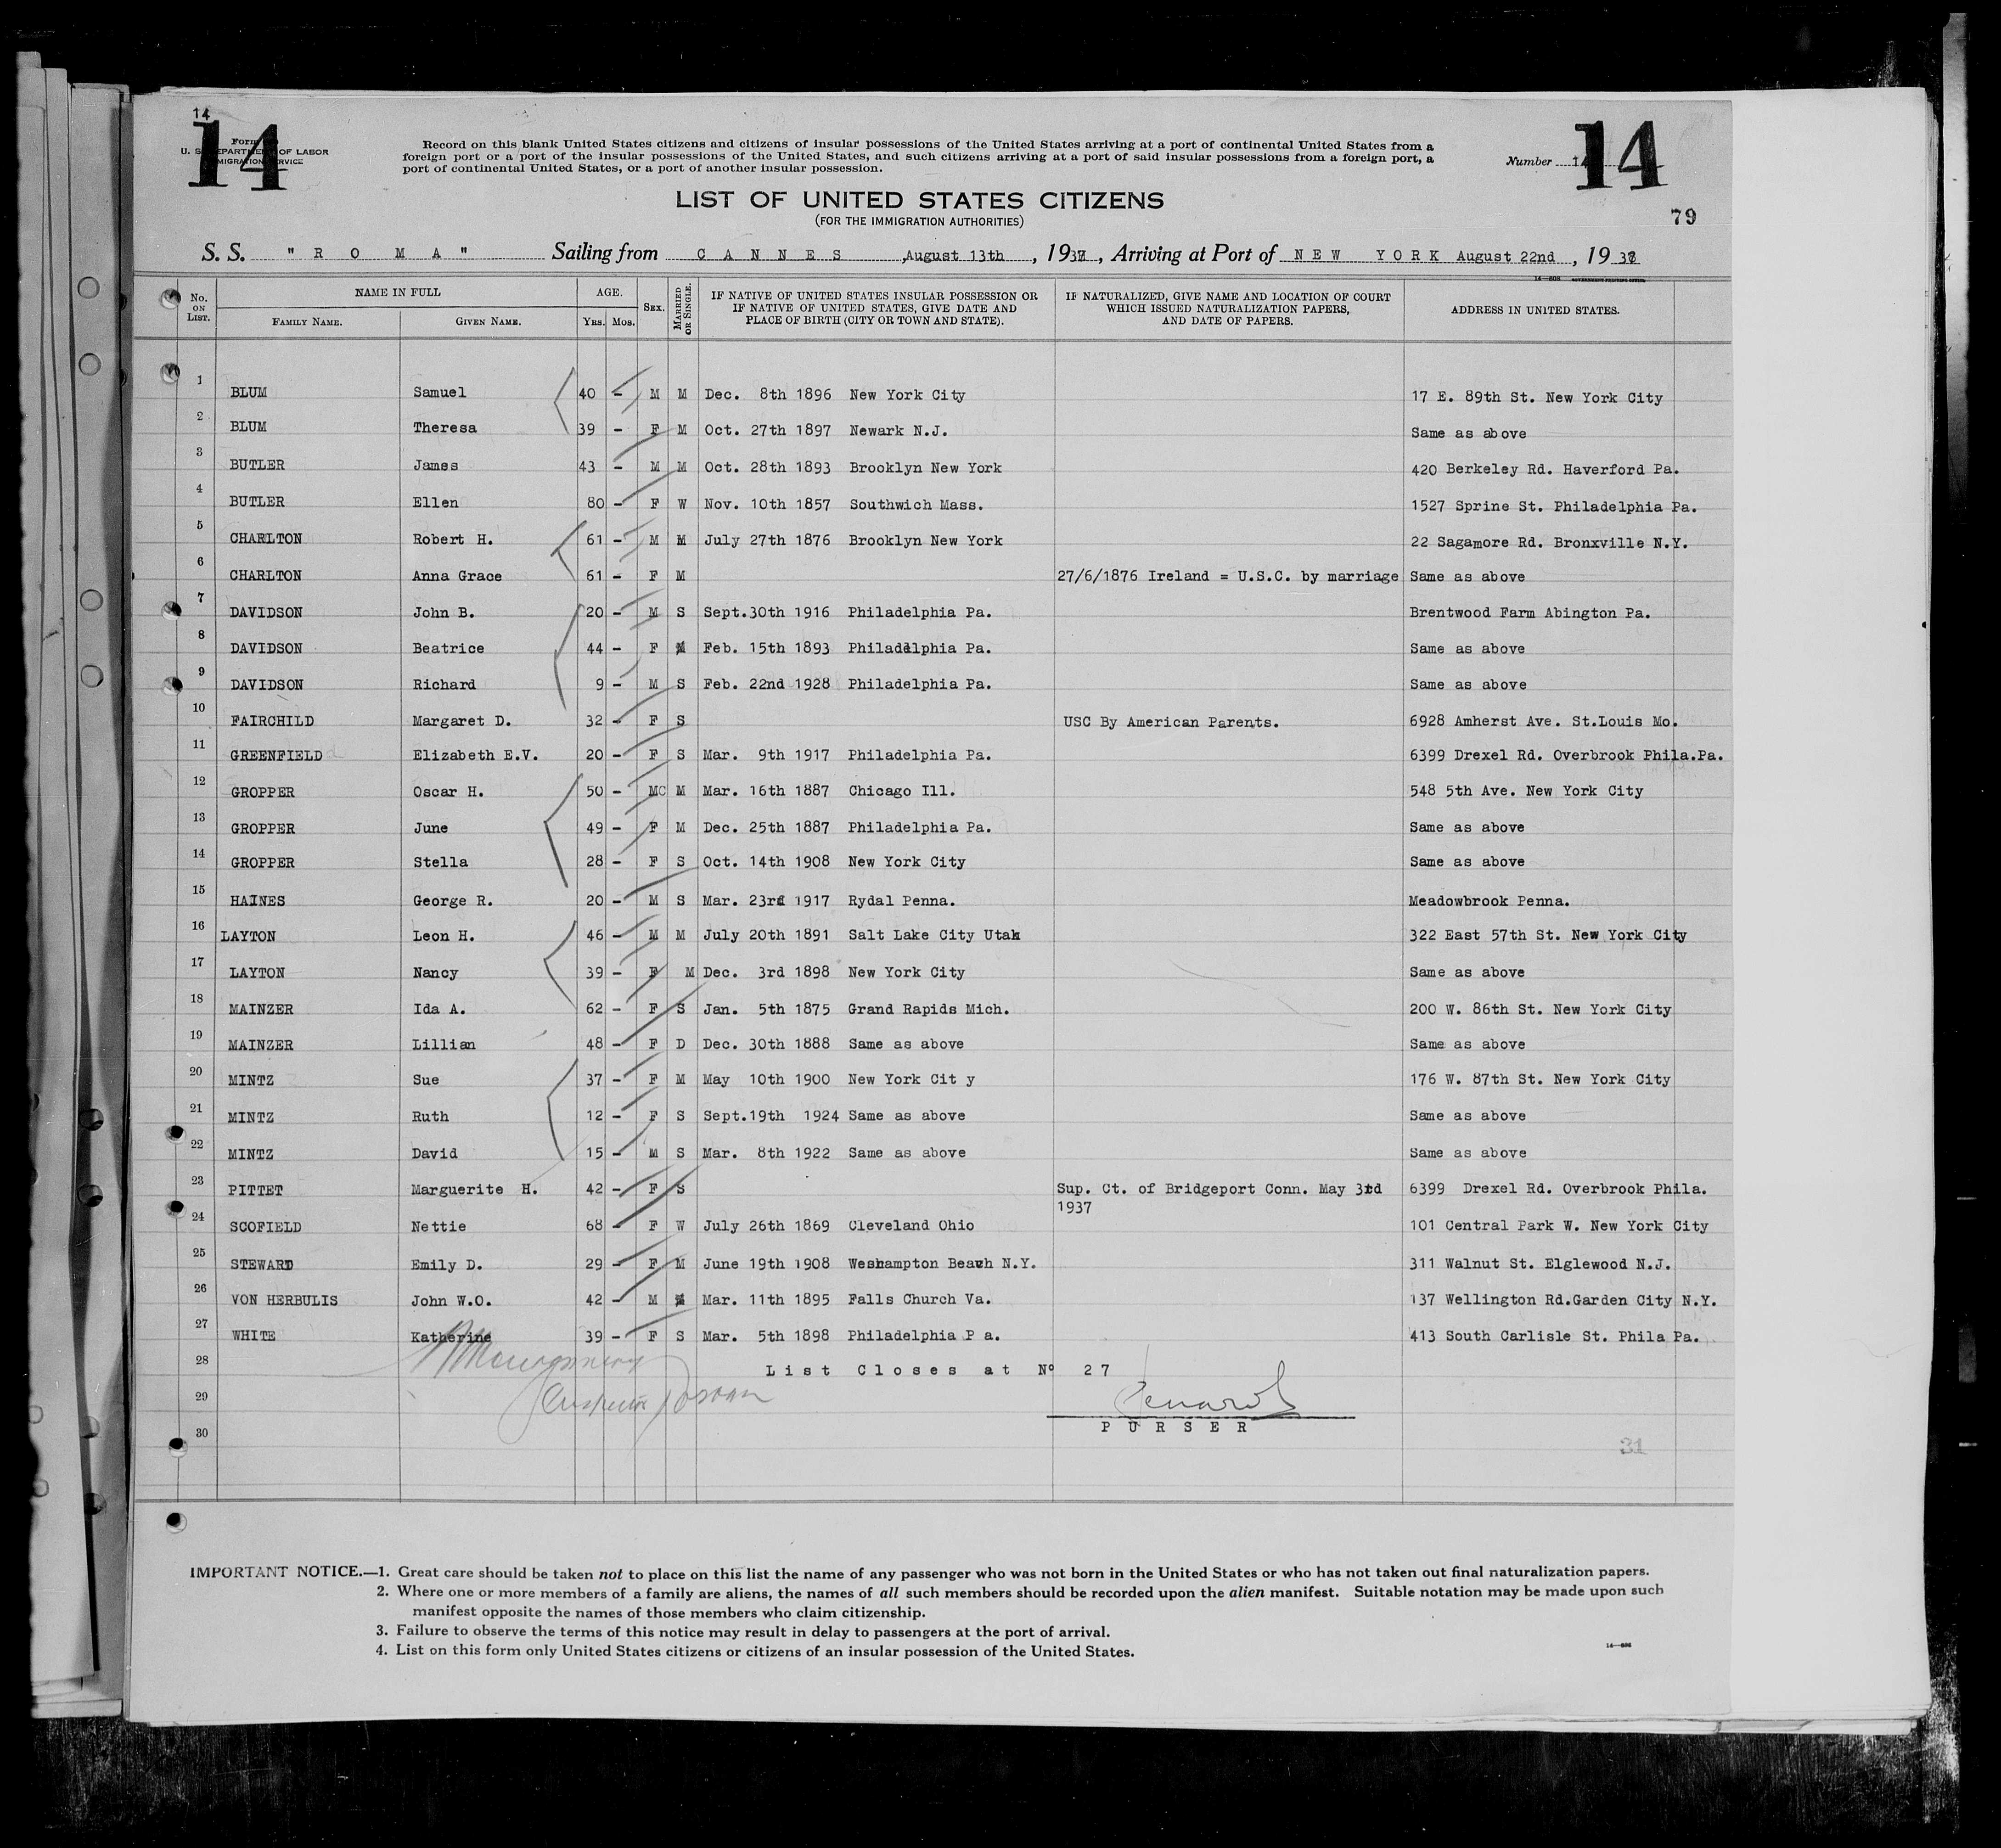 14
14
Form
U. S. DEPARTMENT OF LABOR
IMMIGRATION SERVICE
Record on this blank United States citizens and citizens of insular possessions of the United States arriving at a port of continental United States from a
foreign port or a port of the insular possessions of the United States, and such citizens arriving at a port of said insular possessions from a foreign port, a
port of continental United States, or a port of another insular possession.
Number 14
14
LIST OF UNITED STATES CITIZENS
(FOR THE IMMIGRATION AUTHORITIES)
79
S. S. "ROMA" Sailing from CANNES, August 13th, 1937, Arriving at Port of NEW YORK August 22nd, 1937
No. ON LIST. NAME IN FULL FAMILY NAME. GIVEN NAME. AGE. YRS. MOS. SEX. MARRIED OR SINGLE. IF NATIVE OF UNITED STATES INSULAR POSSESSION OR IF NATIVE OF UNITED STATES, GIVE DATE AND PLACE OF BIRTH (CITY OR TOWN AND STATE). IF NATURALIZED, GIVE NAME AND LOCATION OF COURT WHICH ISSUED NATURALIZATION PAPERS, AND DATE OF PAPERS. ADDRESS IN UNITED STATES.
1 BLUM Samuel 40 - M M Dec. 8th 1896 New York City 17 E. 89th St. New York City
2 BLUM Theresa 39 - F M Oct. 27th 1897 Newark N.J. Same as above
3 BUTLER James 43 - M M Oct. 28th 1893 Brooklyn New York 420 Berkeley Rd. Haverford Pa.
4 BUTLER Ellen 80 - F W Nov. 10th 1857 Southwich Mass. 1527 Sprine St. Philadelphia Pa.
5 CHARLTON Robert H. 61 - M M July 27th 1876 Brooklyn New York 22 Sagamore Rd. Bronxville N.Y.
6 CHARLTON Anna Grace 61 - F M 27/6/1876 Ireland = U.S.C. by marriage Same as above
7 DAVIDSON John B. 20 - M S Sept.30th 1916 Philadelphia Pa. Brentwood Farm Abington Pa.
8 DAVIDSON Beatrice 44 - F M Feb. 15th 1893 Philadelphia Pa. Same as above
9 DAVIDSON Richard 9 - M S Feb. 22nd 1928 Philadelphia Pa. Same as above
10 FAIRCHILD Margaret D. 32 - F S USC By American Parents. 6928 Amherst Ave. St.Louis Mo.
11 GREENFIELD Elizabeth E.V. 20 - F S Mar. 9th 1917 Philadelphia Pa. 6399 Drexel Rd. Overbrook Phila.Pa.
12 GROPPER Oscar H. 50 - MC M Mar. 16th 1887 Chicago Ill. 548 5th Ave. New York City
13 GROPPER June 49 - F M Dec. 25th 1887 Philadelphia Pa. Same as above
14 GROPPER Stella 28 - F S Oct. 14th 1908 New York City Same as above
15 HAINES George R. 20 - M S Mar. 23rd 1917 Rydal Penna. Meadowbrook Penna.
16 LAYTON Leon H. 46 - M M July 20th 1891 Salt Lake City Utah 322 East 57th St. New York City
17 LAYTON Nancy 39 - F M Dec. 3rd 1898 New York City Same as above
18 MAINZER Ida A. 62 - F S Jan. 5th 1875 Grand Rapids Mich. 200 W. 86th St. New York City
19 MAINZER Lillian 48 - F D Dec. 30th 1888 Same as above Same as above
20 MINTZ Sue 37 - F M May 10th 1900 New York Cit y 176 W. 87th St. New York City
21 MINTZ Ruth 12 - F S Sept.19th 1924 Same as above Same as above
22 MINTZ David 15 - M S Mar. 8th 1922 Same as above Same as above
23 PITTET Marguerite H. 42 - F S Sup. Ct. of Bridgeport Conn. May 3rd 1937 6399 Drexel Rd. Overbrook Phila.
24 SCOFIELD Nettie 68 - F W July 26th 1869 Cleveland Ohio 101 Central Park W. New York City
25 STEWARD Emily D. 29 - F M June 19th 1908 Weshampton Beach N.Y. 311 Walnut St. Elglewood N.J.
26 VON HERBULIS John W.O. 42 - M Mar. 11th 1895 Falls Church Va. 137 Wellington Rd.Garden City N.Y.
27 WHITE Katherine 39 - F S Mar. 5th 1898 Philadelphia P a. 413 South Carlisle St. Phila Pa.
28 List Closes at Nº 27
29
30 PURSER
31
IMPORTANT NOTICE.—1. Great care should be taken not to place on this list the name of any passenger who was not born in the United States or who has not taken out final naturalization papers.
2. Where one or more members of a family are aliens, the names of all such members should be recorded upon the alien manifest. Suitable notation may be made upon such
manifest opposite the names of those members who claim citizenship.
3. Failure to observe the terms of this notice may result in delay to passengers at the port of arrival.
4. List on this form only United States citizens or citizens of an insular possession of the United States.